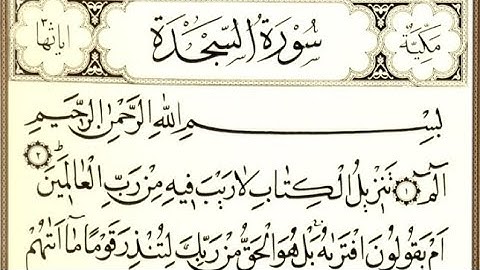 مكية سورة السجدة اياتها ٣٠
بسم الله الرحمن الرحيم
الٓمٓ ﴿١﴾ تَنْزِيلُ الْكِتَابِ لَا رَيْبَ فِيهِ مِنْ رَبِّ الْعَالَمِينَ ﴿٢﴾
اَمْ يَقُولُونَ افْتَرٰيهُ بَلْ هُوَ الْحَقُّ مِنْ رَبِّكَ لِتُنْذِرَ قَوْمًا مَٓا اَتٰيهُمْ